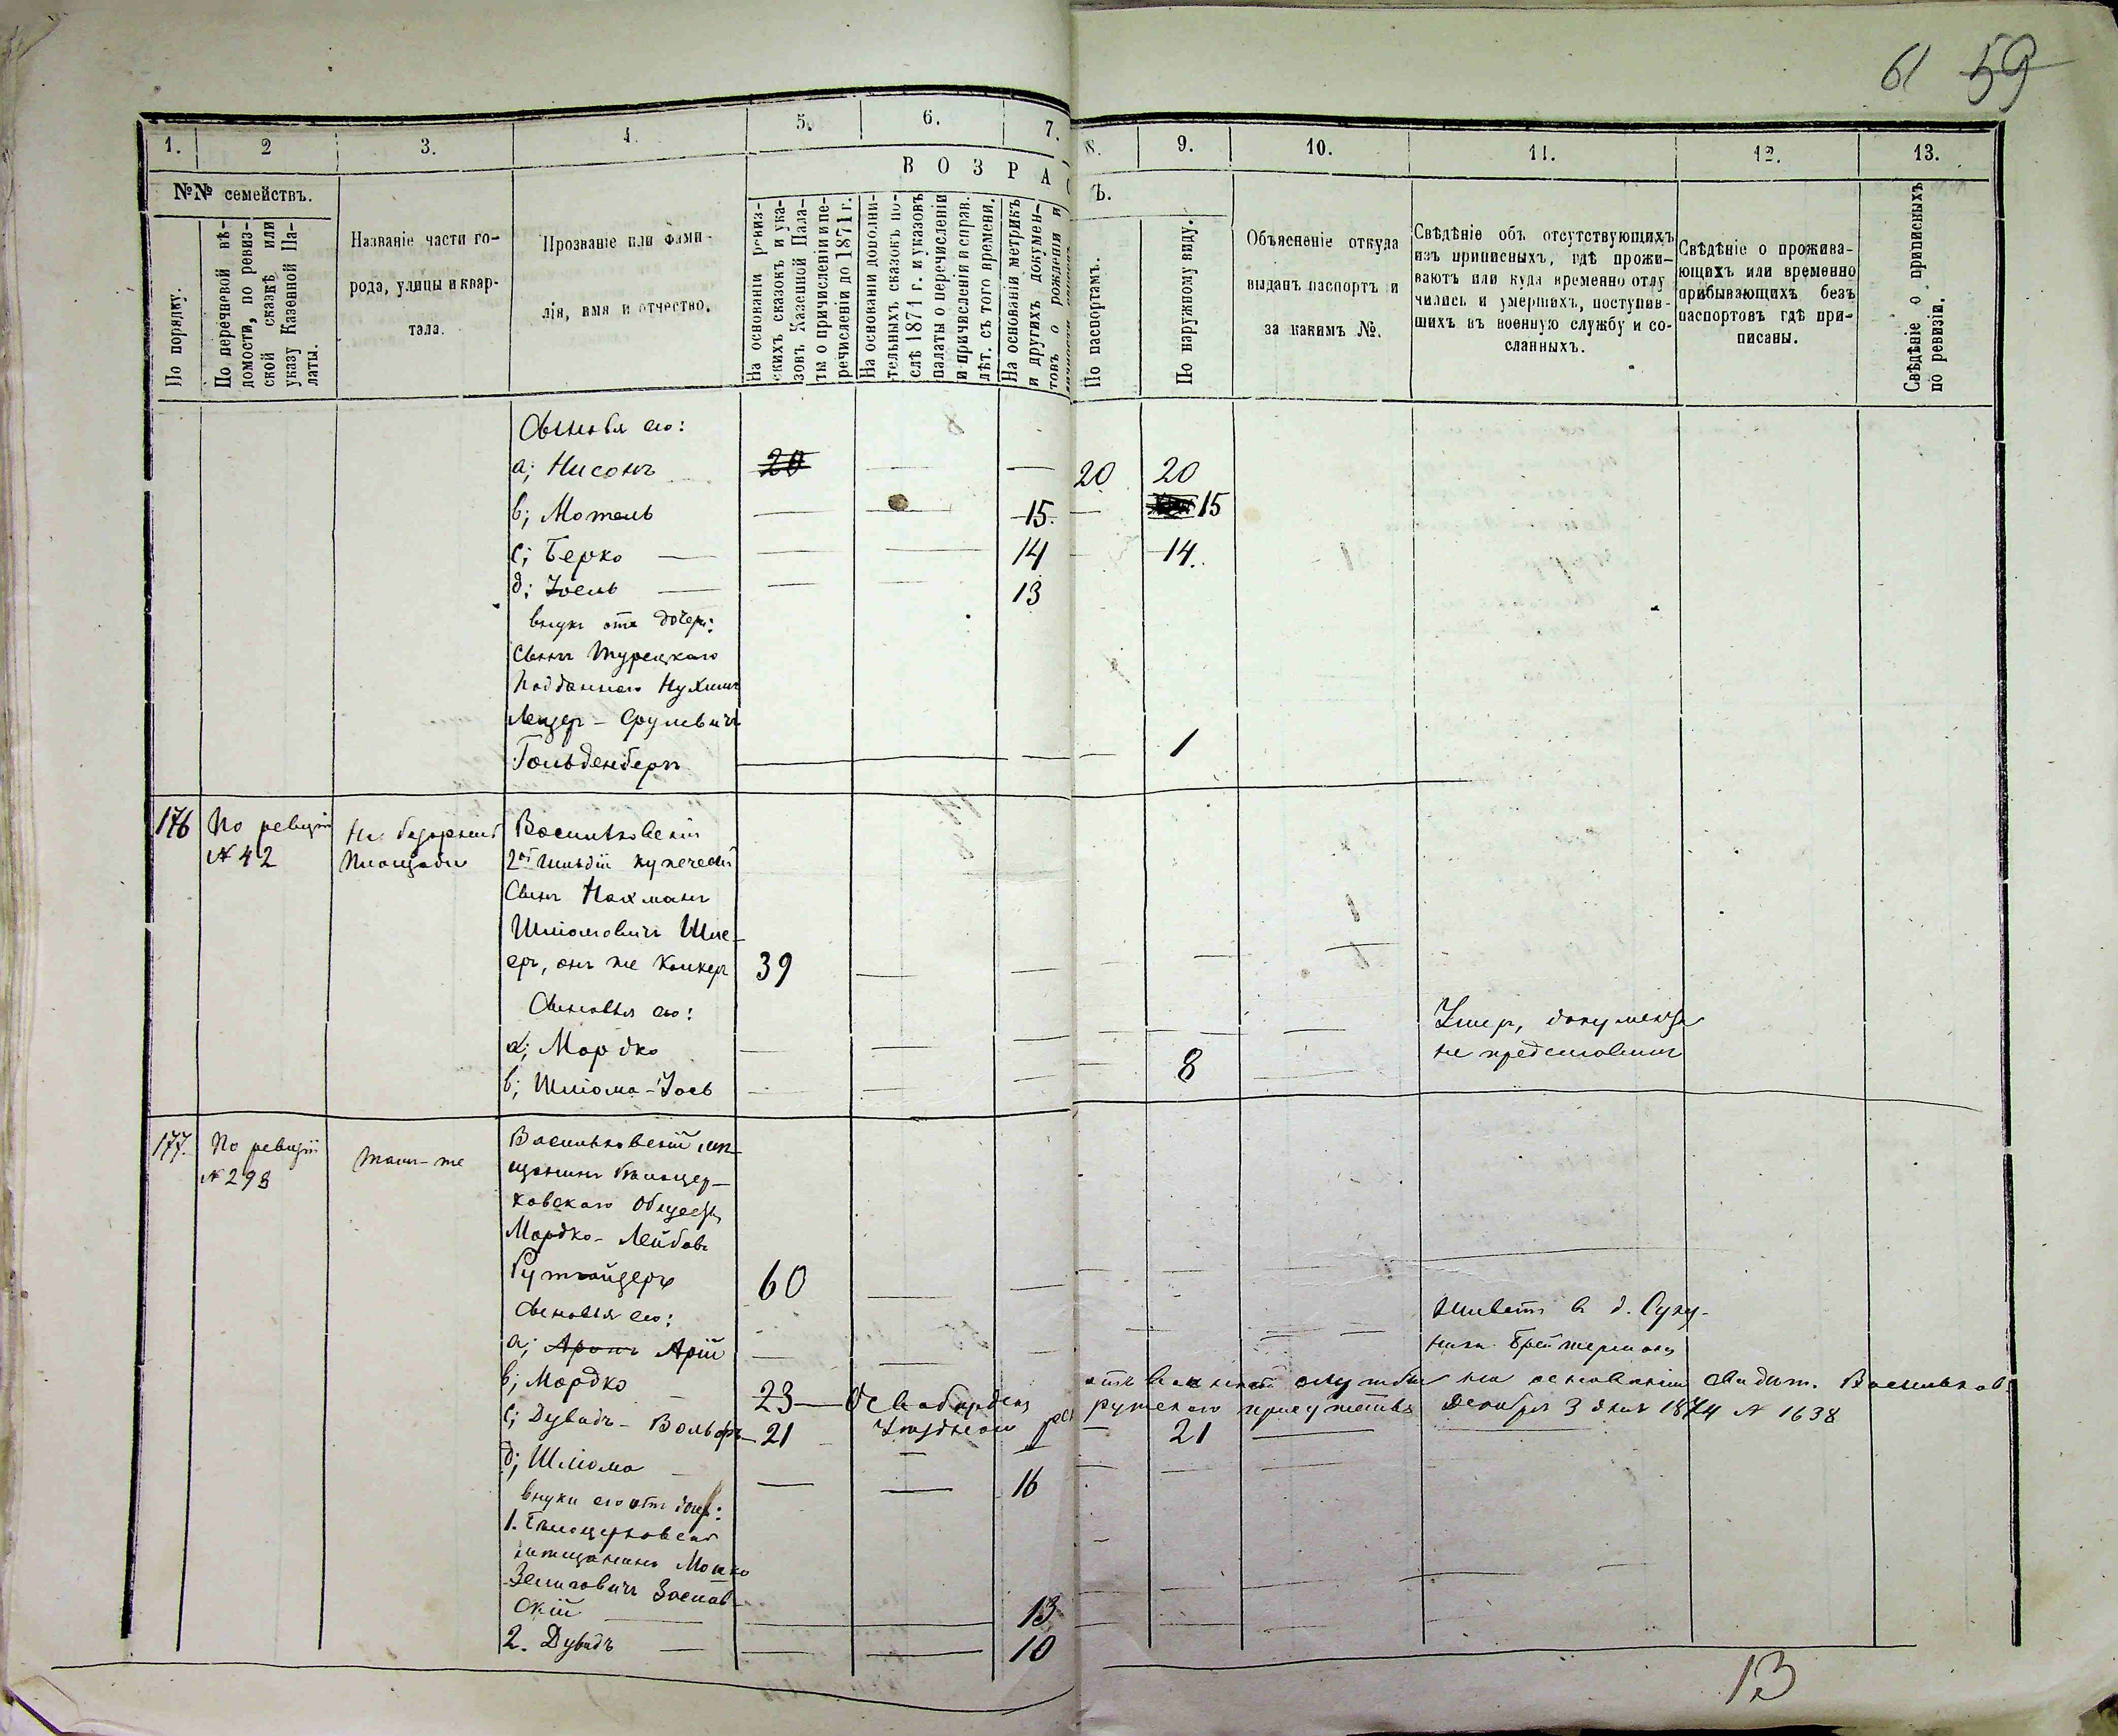 61 59
1. 2 3. 4. 5. 6. 7. 8. 9. 10. 11. 12. 13.
ВОЗРАСТЪ.
№№ семействъ.
По порядку.
По перечневой вѣ-
домости, по ревиз-
ской сказкѣ или
указу Казенной Па-
латы.
Названіе части го-
рода, улицы и квар-
тала.
Прозваніе или фами-
лія, имя и отчество.
На основаніи ревиз-
скихъ сказокъ и ука-
зовъ Казенной Пала-
ты о причисленіи и пе-
речисленіи до 1871 г.
На основаніи дополни-
тельныхъ сказокъ по-
слѣ 1871 г. и указовъ
палаты о перечисленіи
и причисленіи и справ.
лѣт. съ того времени.
На основаніи метрикъ
и другихъ докумен-
товъ о рожденіи и
По паспортамъ.
По наружному виду.
Объясненіе откуда
выданъ паспортъ и
за какимъ №.
Свѣдѣніе объ отсутствующихъ
изъ приписныхъ, гдѣ прожи-
ваютъ или куда временно отлу
чились и умершихъ, поступив-
шихъ въ военную службу и со-
сланныхъ.
Свѣдѣніе о прожива-
ющихъ или временно
прибывающихъ безъ
паспортовъ гдѣ при-
писаны.
Свѣдѣніе о приписныхъ
по ревизіи.
Сыновья его:
а; Нисонъ 20 — — 20 20
в; Мотель — — 15. — 15
с; Берко — — — 14 — 14.
д; Іоель — — — 13
внукъ отъ дочери:
Сынъ Турецкаго
Подданнаго Нухимъ
Лейзер-Срулевичъ
Гольденбергъ — — — — 1
176 По ревизіи № 42 На базарной площади Васильковскій
2ой гильдіи купеческій
Сынъ Нахманъ
Шліомовичъ Шле-
еръ, онъ же Клигер 39 — — —
Сыновья его:
а; Мордко — — — — — — Умеръ, документа
не представилъ
в; Шліома-Іось — — — — 8 —
177. По ревизіи № 298 Тамъ-же Васильковскій мѣ-
щанинъ Бѣлоцер-
ковскаго Общества
Мордко-Лейбовъ
60 — — — — —
Сыновья его:
а; Аронъ Арій — — — — — — Живетъ в д.
в; Мордко — 23 — Освобожденъ отъ воинской службы на основаніи свидѣт. Васильков.
Уѣзднаго рекрутскаго присутствія Декабря 3 дня 1874 № 1638
с; Дувидъ-Вольфъ — 21 — — — 21 — —
д; Шліома — — — 16 — — —
внуки его отъ дочер:
1. Бѣлоцерковскій
мѣщанинъ Мошко
Зелиговичъ Заслав-
скій — — — 13 — — —
2. Дувидъ — — — 10
13